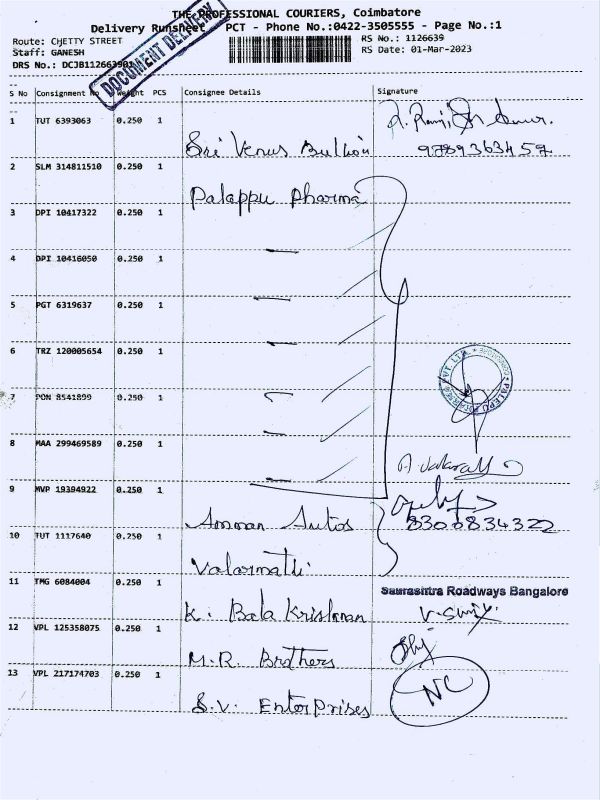 THE PROFESSIONAL COURIERS, Coimbatore
Delivery Runsheet PCT - Phone No.:0422-3505555 - Page No.:1
Route: CHETTY STREET
RS No.: 1126639
Staff: GANESH
RS Date: 01-Mar-2023
DRS No.: DCJB112663901
DOCUMENT DELIVERY
S No Consignment No Weight PCS Consignee Details Signature
1 TUT 6393063 0.250 1
Sri Venus Bullion 9789363457
2 SLM 314811510 0.250 1
Palappu Pharma
3 DPI 10417322 0.250 1
4 DPI 10416050 0.250 1
5 PGT 6319637 0.250 1
6 TRZ 120005654 0.250 1
7 PON 8541899 0.250 1
8 MAA 299469589 0.250 1
9 MVP 19394922 0.250 1
Amman Autos 8300834322
10 TUT 1117640 0.250 1
Valarmathi
11 TMG 6084004 0.250 1 Saurashtra Roadways Bangalore
K. Bala Krishnan
12 VPL 125358075 0.250 1
M.R. Brothers
13 VPL 217174703 0.250 1 NC
S.V. EnterPrises